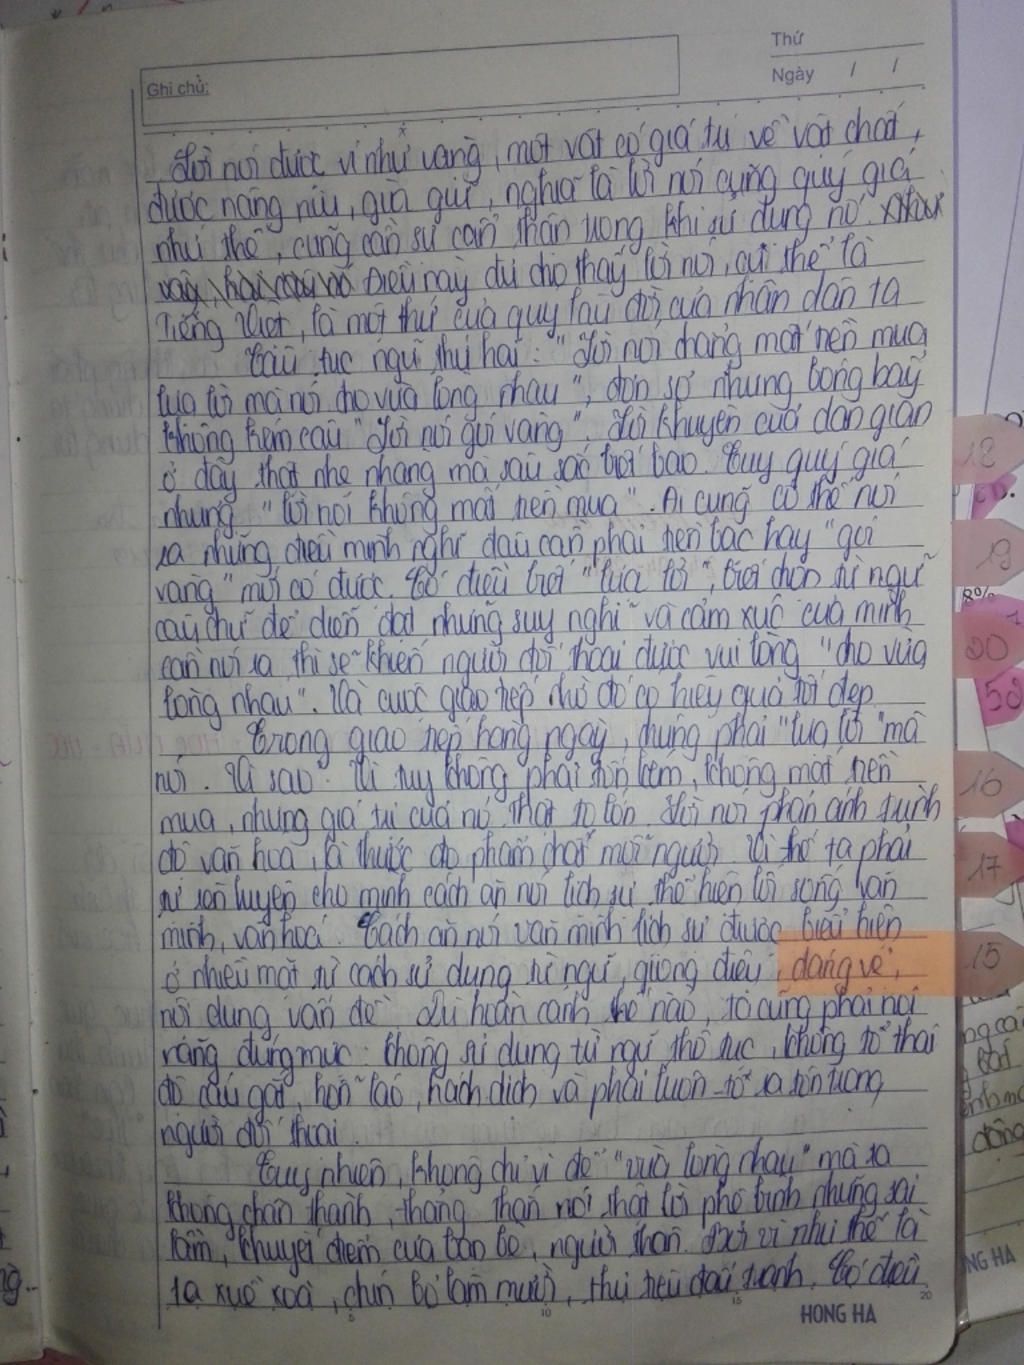 Thứ
Ghi chú:
Ngày / /
Lời nói được ví như vàng, một vật có giá trị về vật chất,
được nâng niu, giữ gìn, nghĩa là lời nói cũng quý giá
như thế, cũng cần sự cẩn thận trong khi sử dụng nó.
Điều này đủ cho thấy lời nói, cụ thể là
Tiếng Việt, là một thứ của quý lâu đời của nhân dân ta
Câu tục ngữ thứ hai: "Lời nói chẳng mất tiền mua
Lựa lời mà nói cho vừa lòng nhau", đơn sơ nhưng bóng bẩy
không kém câu "Lời nói gói vàng". Lời khuyên của dân gian
ở đây thật nhẹ nhàng mà sâu sắc biết bao. Tuy quý giá
nhưng "lời nói không mất tiền mua". Ai cũng có thể nói
ra những điều mình nghĩ đâu cần phải tiền bạc hay "gói
vàng" mới có được. Có điều biết "lựa lời", biết chọn từ ngữ
câu chữ để diễn đạt những suy nghĩ và cảm xúc của mình
cần nói ra thì sẽ khiến người đối thoại được vui lòng "cho vừa
lòng nhau". Và cuộc giao tiếp nhờ đó có hiệu quả tốt đẹp
Trong giao tiếp hàng ngày, chúng phải "lựa lời" mà
nói. Vì sao? Vì tuy không phải tốn kém, không mất tiền
mua, nhưng giá trị của nó thật to lớn. Lời nói phản ánh trình
độ văn hóa, là thước đo phẩm chất mỗi người. Vì thế ta phải
tự rèn luyện cho mình cách ăn nói lịch sự thể hiện lối sống văn
minh, văn hoá. Cách ăn nói văn minh lịch sự được biểu hiện
ở nhiều mặt từ cách sử dụng từ ngữ, giọng điệu, dáng vẻ,
nội dung vấn đề. Dù hoàn cảnh thế nào, ta cũng phải nói
năng đúng mực: không sử dụng từ ngữ thô tục, không tỏ thái
độ cáu gắt, hỗn láo, hách dịch và phải luôn tỏ ra tôn trọng
người đối thoại.
Tuy nhiên, không chỉ vì để "vừa lòng nhau" mà ta
không chân thành, thẳng thắn nói thật lời phê bình những sai
lầm, khuyết điểm của bạn bè, người thân. Bởi vì như thế là
ta xuề xoà, chín bỏ làm mười, thủ tiêu đấu tranh. Có điều
5 10 15 20
HONG HA
18
19
8%
20
58
16
17
15
NG HA